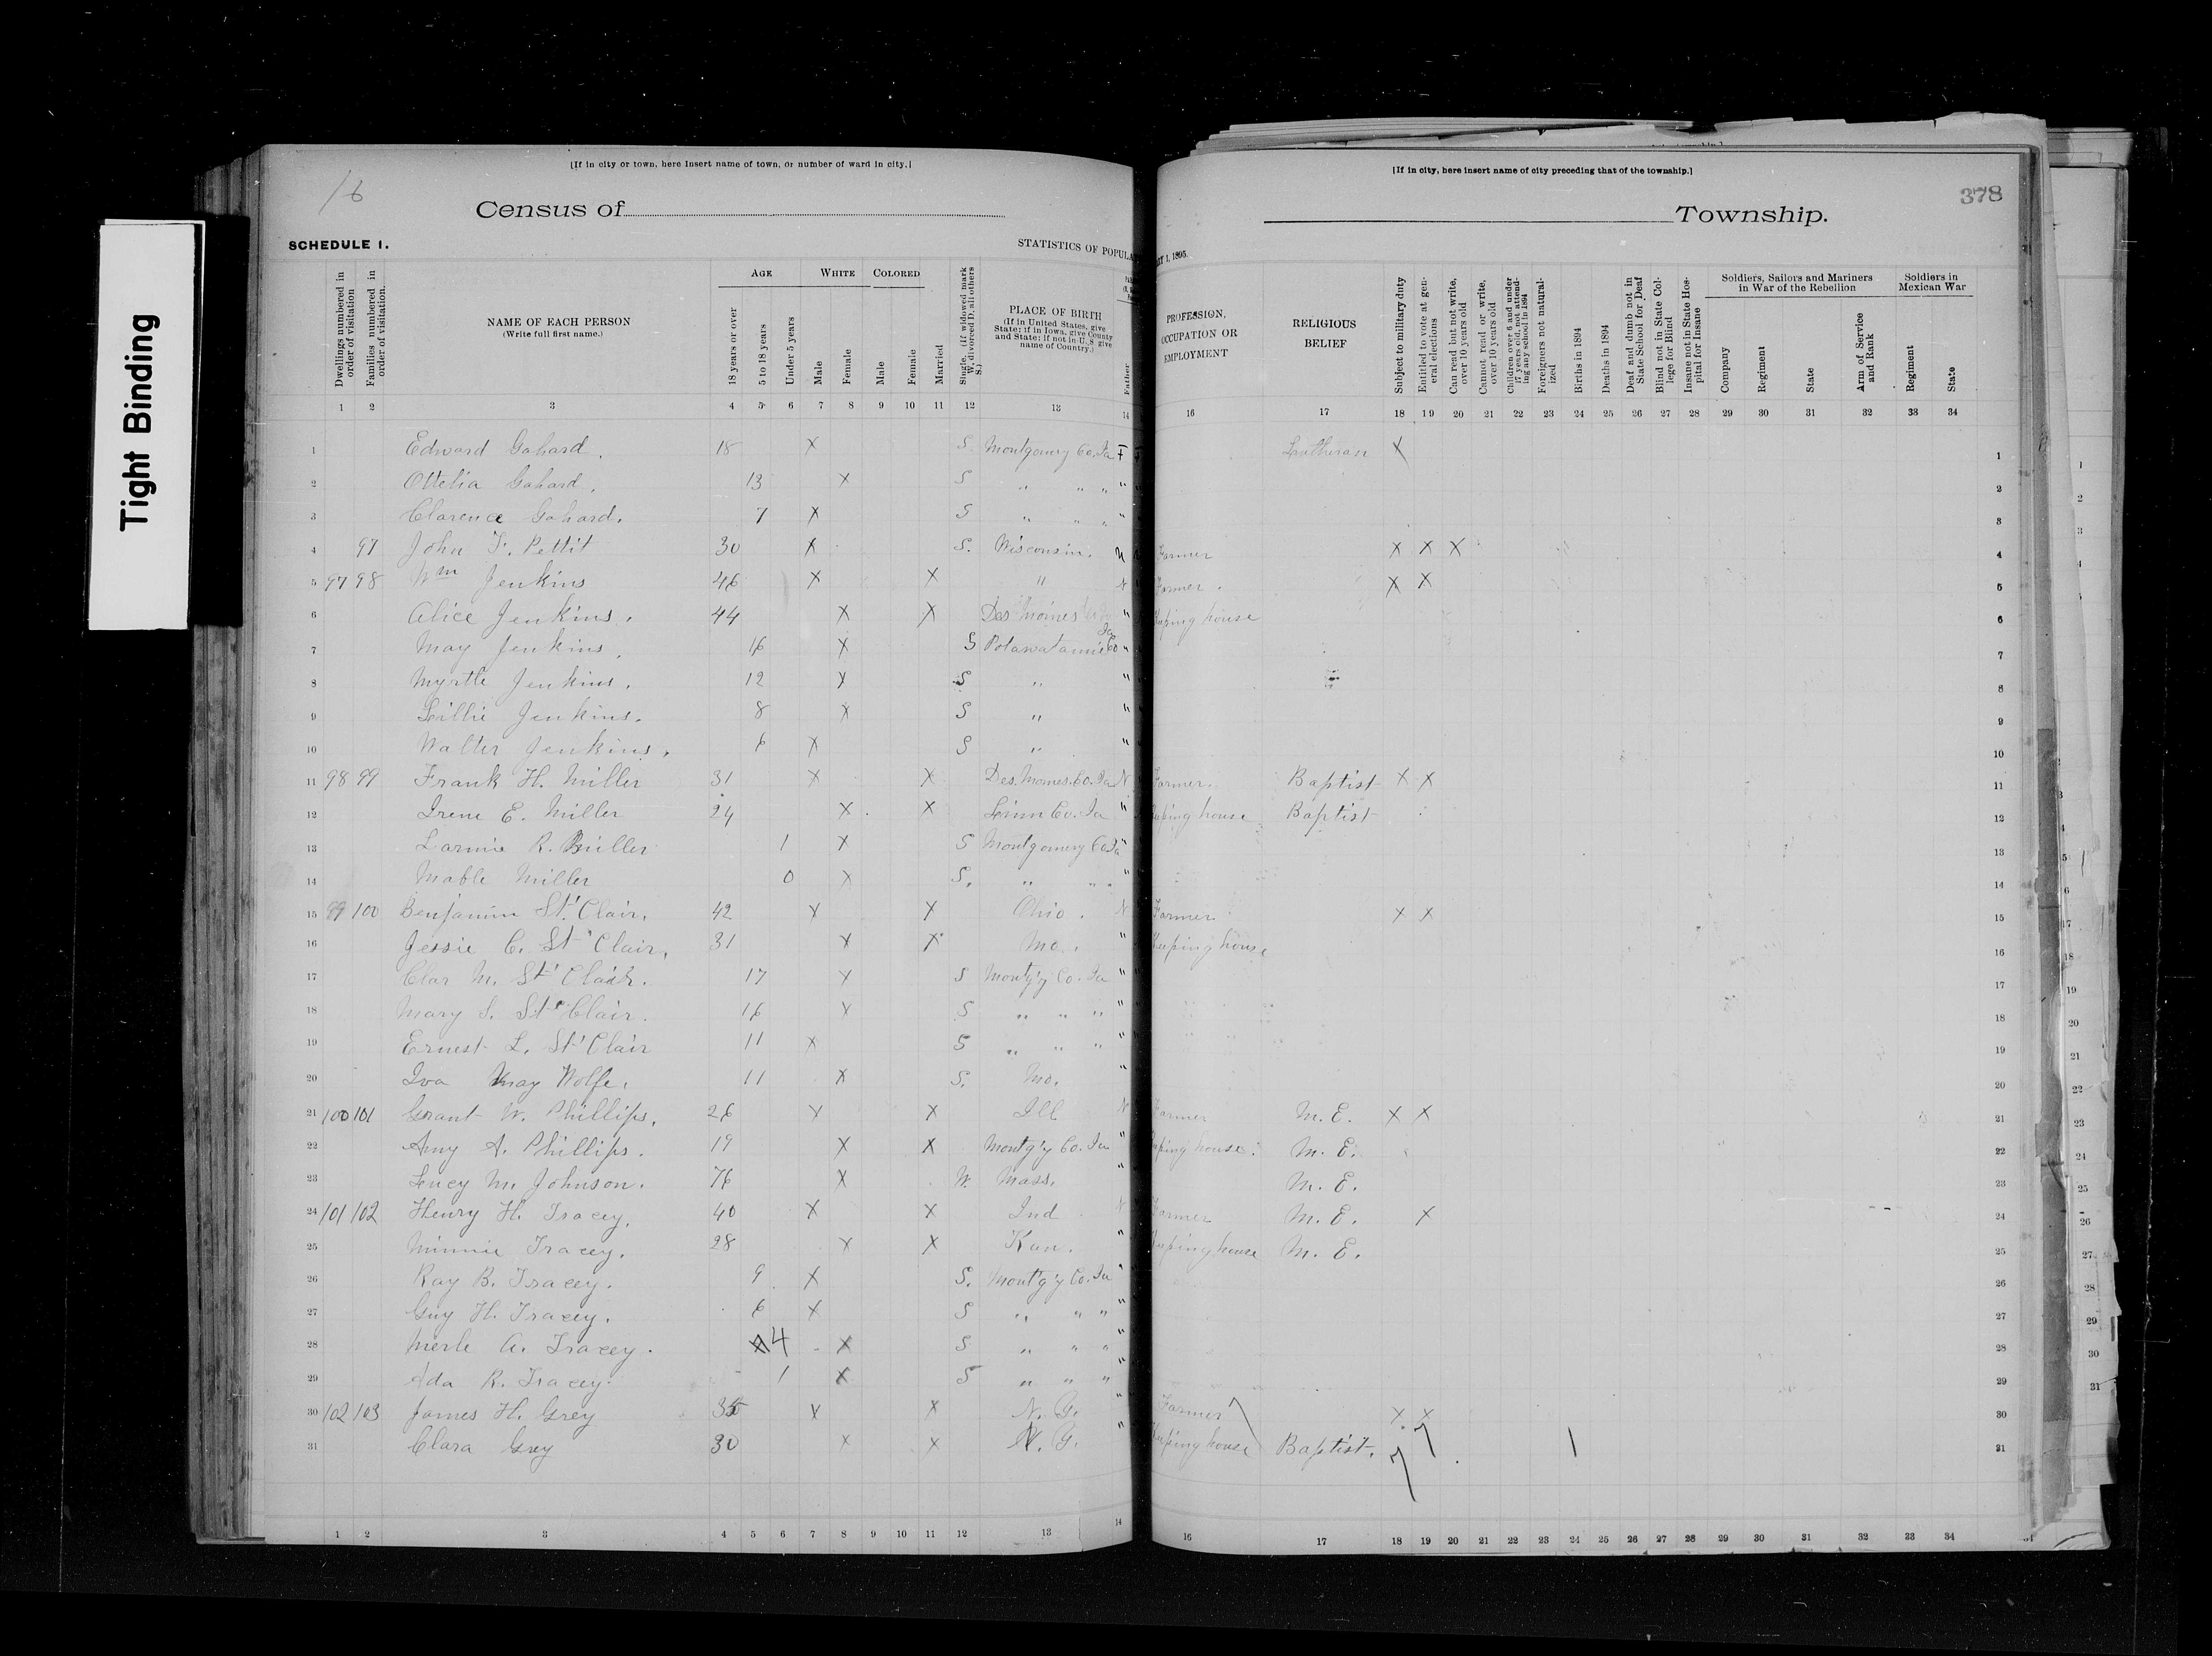 Tight Binding
[If in city or town, here insert name of town, or number of ward in city.]
[If in city, here insert name of city preceding that of the township.]
16
378
Census of Township.
SCHEDULE 1. STATISTICS OF POPULA RY 1, 1895.
Dwellings numbered in order of visitation
Families numbered in order of visitation.
NAME OF EACH PERSON
(Write full first name.)
AGE
18 years or over
5 to 18 years
Under 5 years
WHITE
Male
Female
COLORED
Male
Female
Married
Single. (If widowed mark W. divorced D. all others S.)
PLACE OF BIRTH
(If in United States, give State; if in Iowa, give County and State; if not in U. S. give name of Country.)
Father
PROFESSION, OCCUPATION OR EMPLOYMENT
RELIGIOUS BELIEF
Subject to military duty
Entitled to vote at general elections
Can read but not write, over 10 years old
Cannot read or write, over 10 years old
Children over 6 and under 17 years old, not attending any school in 1894
Foreigners not naturalized
Births in 1894
Deaths in 1894
Deaf and dumb not in State School for Deaf
Blind not in State College for Blind
Insane not in State Hospital for Insane
Soldiers, Sailors and Mariners in War of the Rebellion
Company
Regiment
State
Arm of Service and Rank
Soldiers in Mexican War
Regiment
State
1 2 3 4 5 6 7 8 9 10 11 12 13 14 16 17 18 19 20 21 22 23 24 25 26 27 28 29 30 31 32 33 34
1 Edward Gahard. 18 X S. Montgomery Co. Ia F Lutheran X 1
2 Ottelia Gahard. 13 X S " " " " 2
3 Clarence Gahard. 7 X S " " " " 3
4 97 John F. Pettit 30 X S. Wisconsin. N Farmer X X X 4
5 97 98 Wm Jenkins 46 X X " N Farmer. X X 5
6 Alice Jenkins. 44 X X Des Moines " Keeping house 6
7 May Jenkins. 16 X S Potawatamie Co Ia " 7
8 Myrtle Jenkins. 12 X S " " 8
9 Lillie Jenkins. 8 X S " " 9
10 Walter Jenkins. 6 X S " " 10
11 98 99 Frank H. Miller 31 X X Des. Moines. Co. Ia N Farmer. Baptist X X 11
12 Irene E. Miller 24 X X Linn Co. Ia " Keeping house Baptist 12
13 R. Miller 1 X S Montgomery Co Ia " 13
14 Mable Miller 0 X S. " " " 14
15 99 100 Benjamin St. Clair. 42 X X Ohio. N Farmer X X 15
16 Jessie C. St Clair. 31 X X Mo. " Keeping house 16
17 Clar M. St Clair. 17 X S Montg'y Co. Ia " 17
18 Mary S. St Clair. 16 X S " " " " 18
19 Ernest L. St Clair 11 X S " " " " 19
20 Iva May Wolfe. 11 X S. Mo. " 20
21 100 101 Grant W. Phillips. 26 X X Ill N Farmer M. E. X X 21
22 Amy A. Phillips. 19 X X Montg'y Co. Ia " Keeping house. M. E. 22
23 Lucy M. Johnson. 76 X W. Mass. " M. E. 23
24 101 102 Henry H. Tracey. 40 X X Ind N Farmer M. E. X 24
25 Minnie Tracey. 28 X X Kan. " Keeping house M. E. 25
26 Ray B. Tracey. 9 X S. Montg'y Co. Ia " 26
27 Guy H. Tracey. 6 X S " " " " 27
28 Merle A. Tracey. 4 X S " " " " 28
29 Ada R. Tracey. 1 X S " " " " 29
30 102 103 James H. Grey 35 X X N. Y. " Farmer X X 30
31 Clara Grey 30 X X N. Y. " Keeping house Baptist. 1 31
7 7
1 2 3 4 5 6 7 8 9 10 11 12 13 14 16 17 18 19 20 21 22 23 24 25 26 27 28 29 30 31 32 33 34